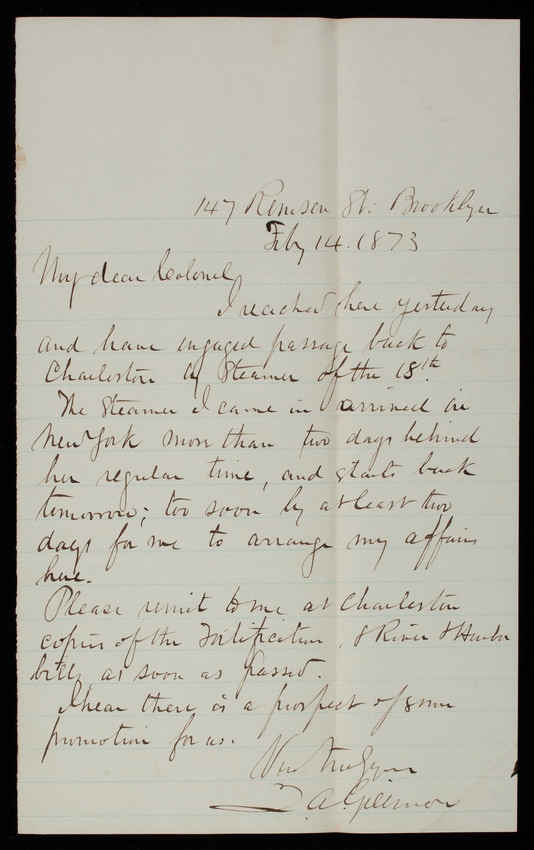 147 Remsen St: Brooklyn
Feby 14. 1873
My dear Colonel,
I reached here yesterday
and have engaged passage back to
Charleston by Steamer of the 18th.
The Steamer I came in arrived in
New York more than two days behind
her regular time, and starts back
tomorrow; too soon by at least two
days for me to arrange my affairs
here.
Please remit to me at Charleston
copies of the Fortification, & River & Harbor
bills as soon as passed.
I hear there is a prospect of some
promotion for us.
Very truly yours
Q. A. Gillmore